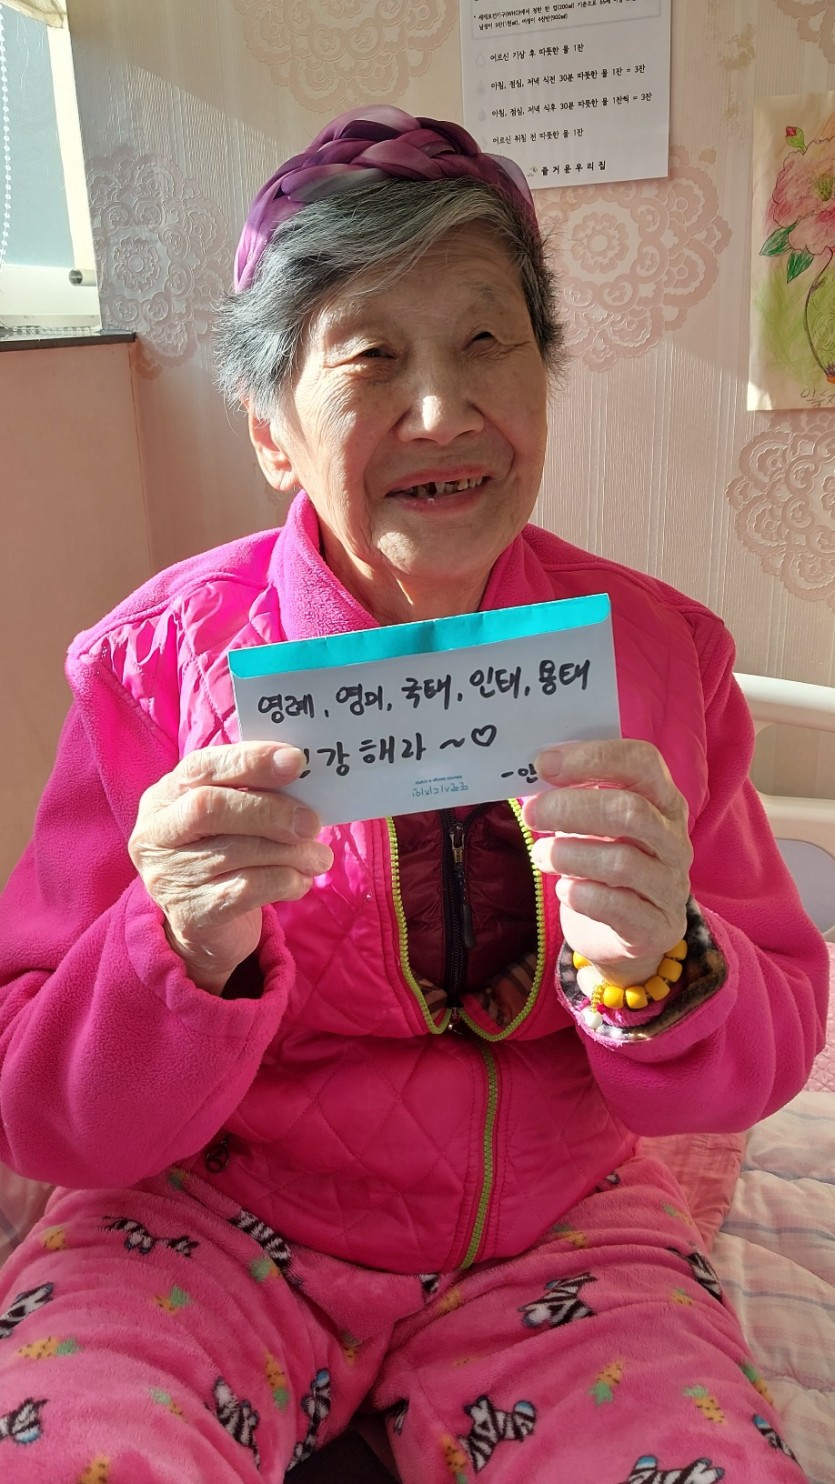 남성이 5잔(1천㎖), 여성이 4잔반(900㎖)
어르신 기상 후 따뜻한 물 1잔
아침, 점심, 저녁 식전 30분 따뜻한 물 1잔 = 3잔
아침, 점심, 저녁 식후 30분 따뜻한 물 1잔씩 = 3잔
어르신 취침 전 따뜻한 물 1잔
즐거운우리집
영례, 영미, 국태, 인태, 용태
강해라~♡
-안